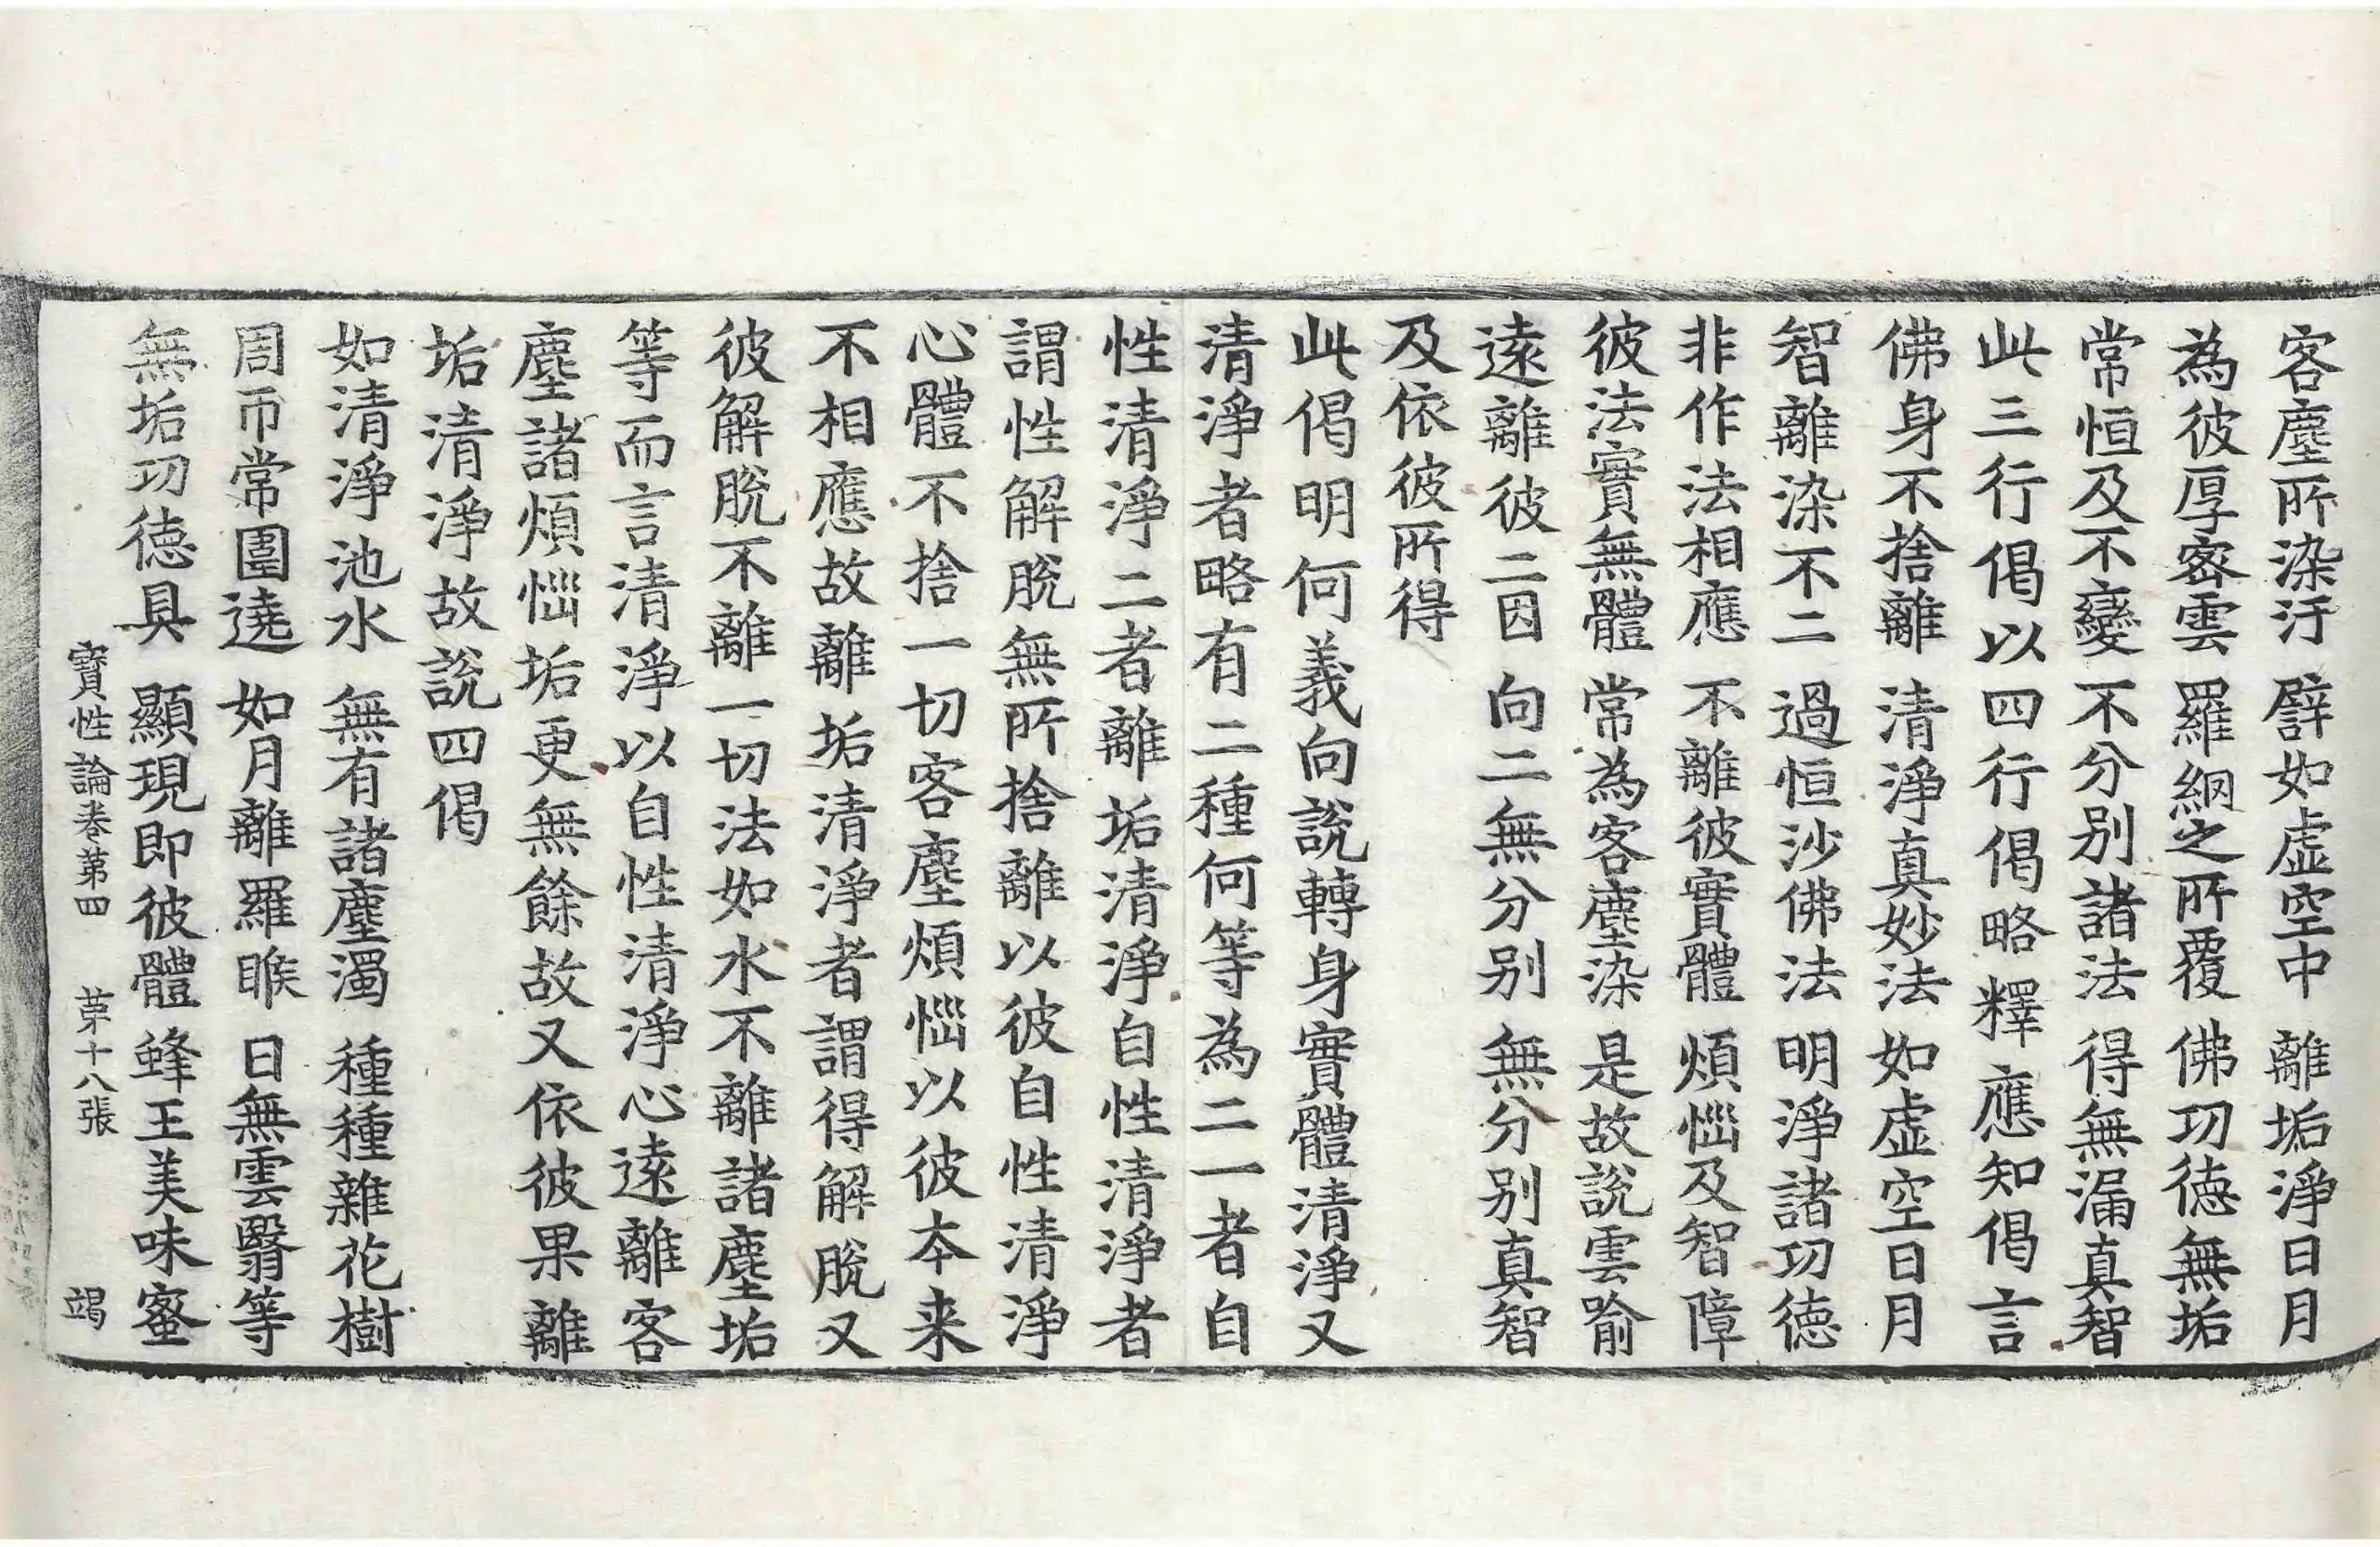 客塵所染汙　譬如虛空中　離垢淨日月
為彼厚密雲　羅網之所覆　佛功德無垢
常恒及不變　不分別諸法　得無漏真智
此三行偈以四行偈略釋應知偈言
佛身不捨離　清淨真妙法　如虛空日月
智離染不二　過恒沙佛法　明淨諸功德
非作法相應　不離彼實體　煩惱及智障
彼法實無體　常為客塵染　是故說雲喻
遠離彼二因　向二無分別　無分別真智
及依彼所得
此偈明何義向說轉身實體清淨又
清淨者略有二種何等為二一者自
性清淨二者離垢清淨自性清淨者
謂性解脫無所捨離以彼自性清淨
心體不捨一切客塵煩惱以彼本来
不相應故離垢清淨者謂得解脫又
彼解脫不離一切法如水不離諸塵垢
等而言清淨以自性清淨心遠離客
塵諸煩惱垢更無餘故又依彼果離
垢清淨故說四偈
如清淨池水　無有諸塵濁　種種雜花樹
周帀常圍遶　如月離羅睺　日無雲翳等
無垢功德具　顯現即彼體　蜂王美味蜜
寶性論卷第四　苐十八張　竭